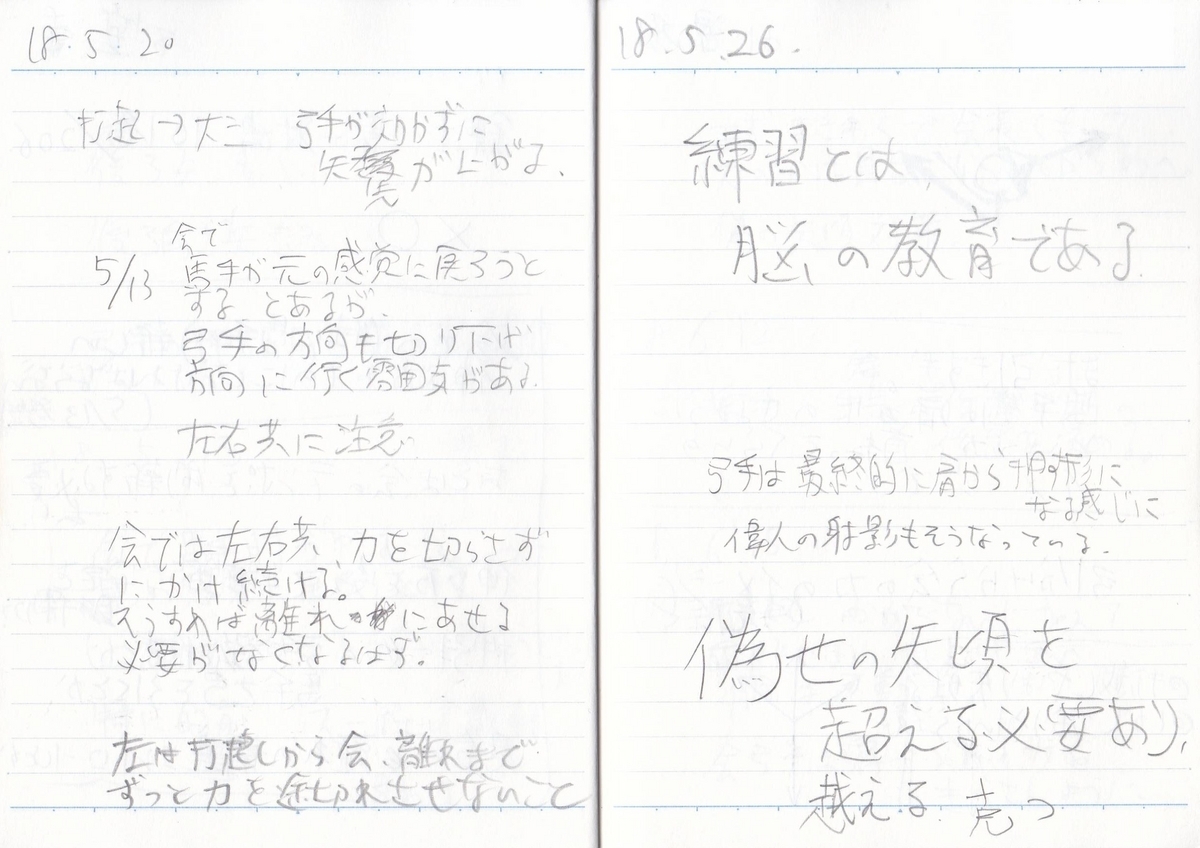 18.5.20
打起→大三 弓手が効かずに
矢鷺がにがる、
会で
5/13 馬手が元の感覚に戻ろうと
する とあるが、
弓手の方向も切り下げ
方向に行く雰囲気がある.
左右共に注意
会では左右共、力を切らさず
にかけ続ける。
そうすれば離れにあせる
必要がなくなるはず。
左は打起しから会、離れまで
ずっと力を途切れさせないこと
18.5.26.
練習とは、
脳の教育である.
弓手は最終的に肩から押す形に
なる感じに
偉人の射影もそうなっている.
偽せの矢頃を
超える必要あり、
越える 克つ